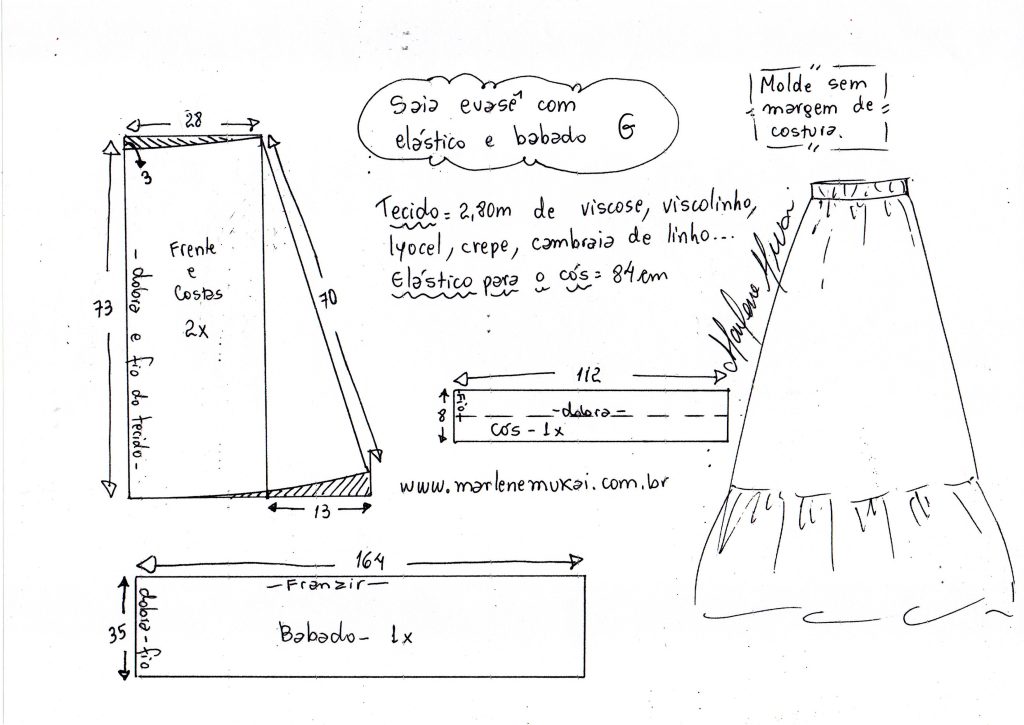 Saia evasê com
elástico e babado G
Molde sem
margem de
costura.
28
3
Frente
e
Costas
2x
73
-dobra e fio do tecido-
70
13
Tecido= 2,80m de viscose, viscolinho,
lyocel, crepe, cambraia de linho...
Elástico para o cós= 84cm
Marlene Mukai
112
8
Fio
-dobra-
cós-1x
www.marlenemukai.com.br
164
-Franzir-
35
dobra-fio
Babado- 1x